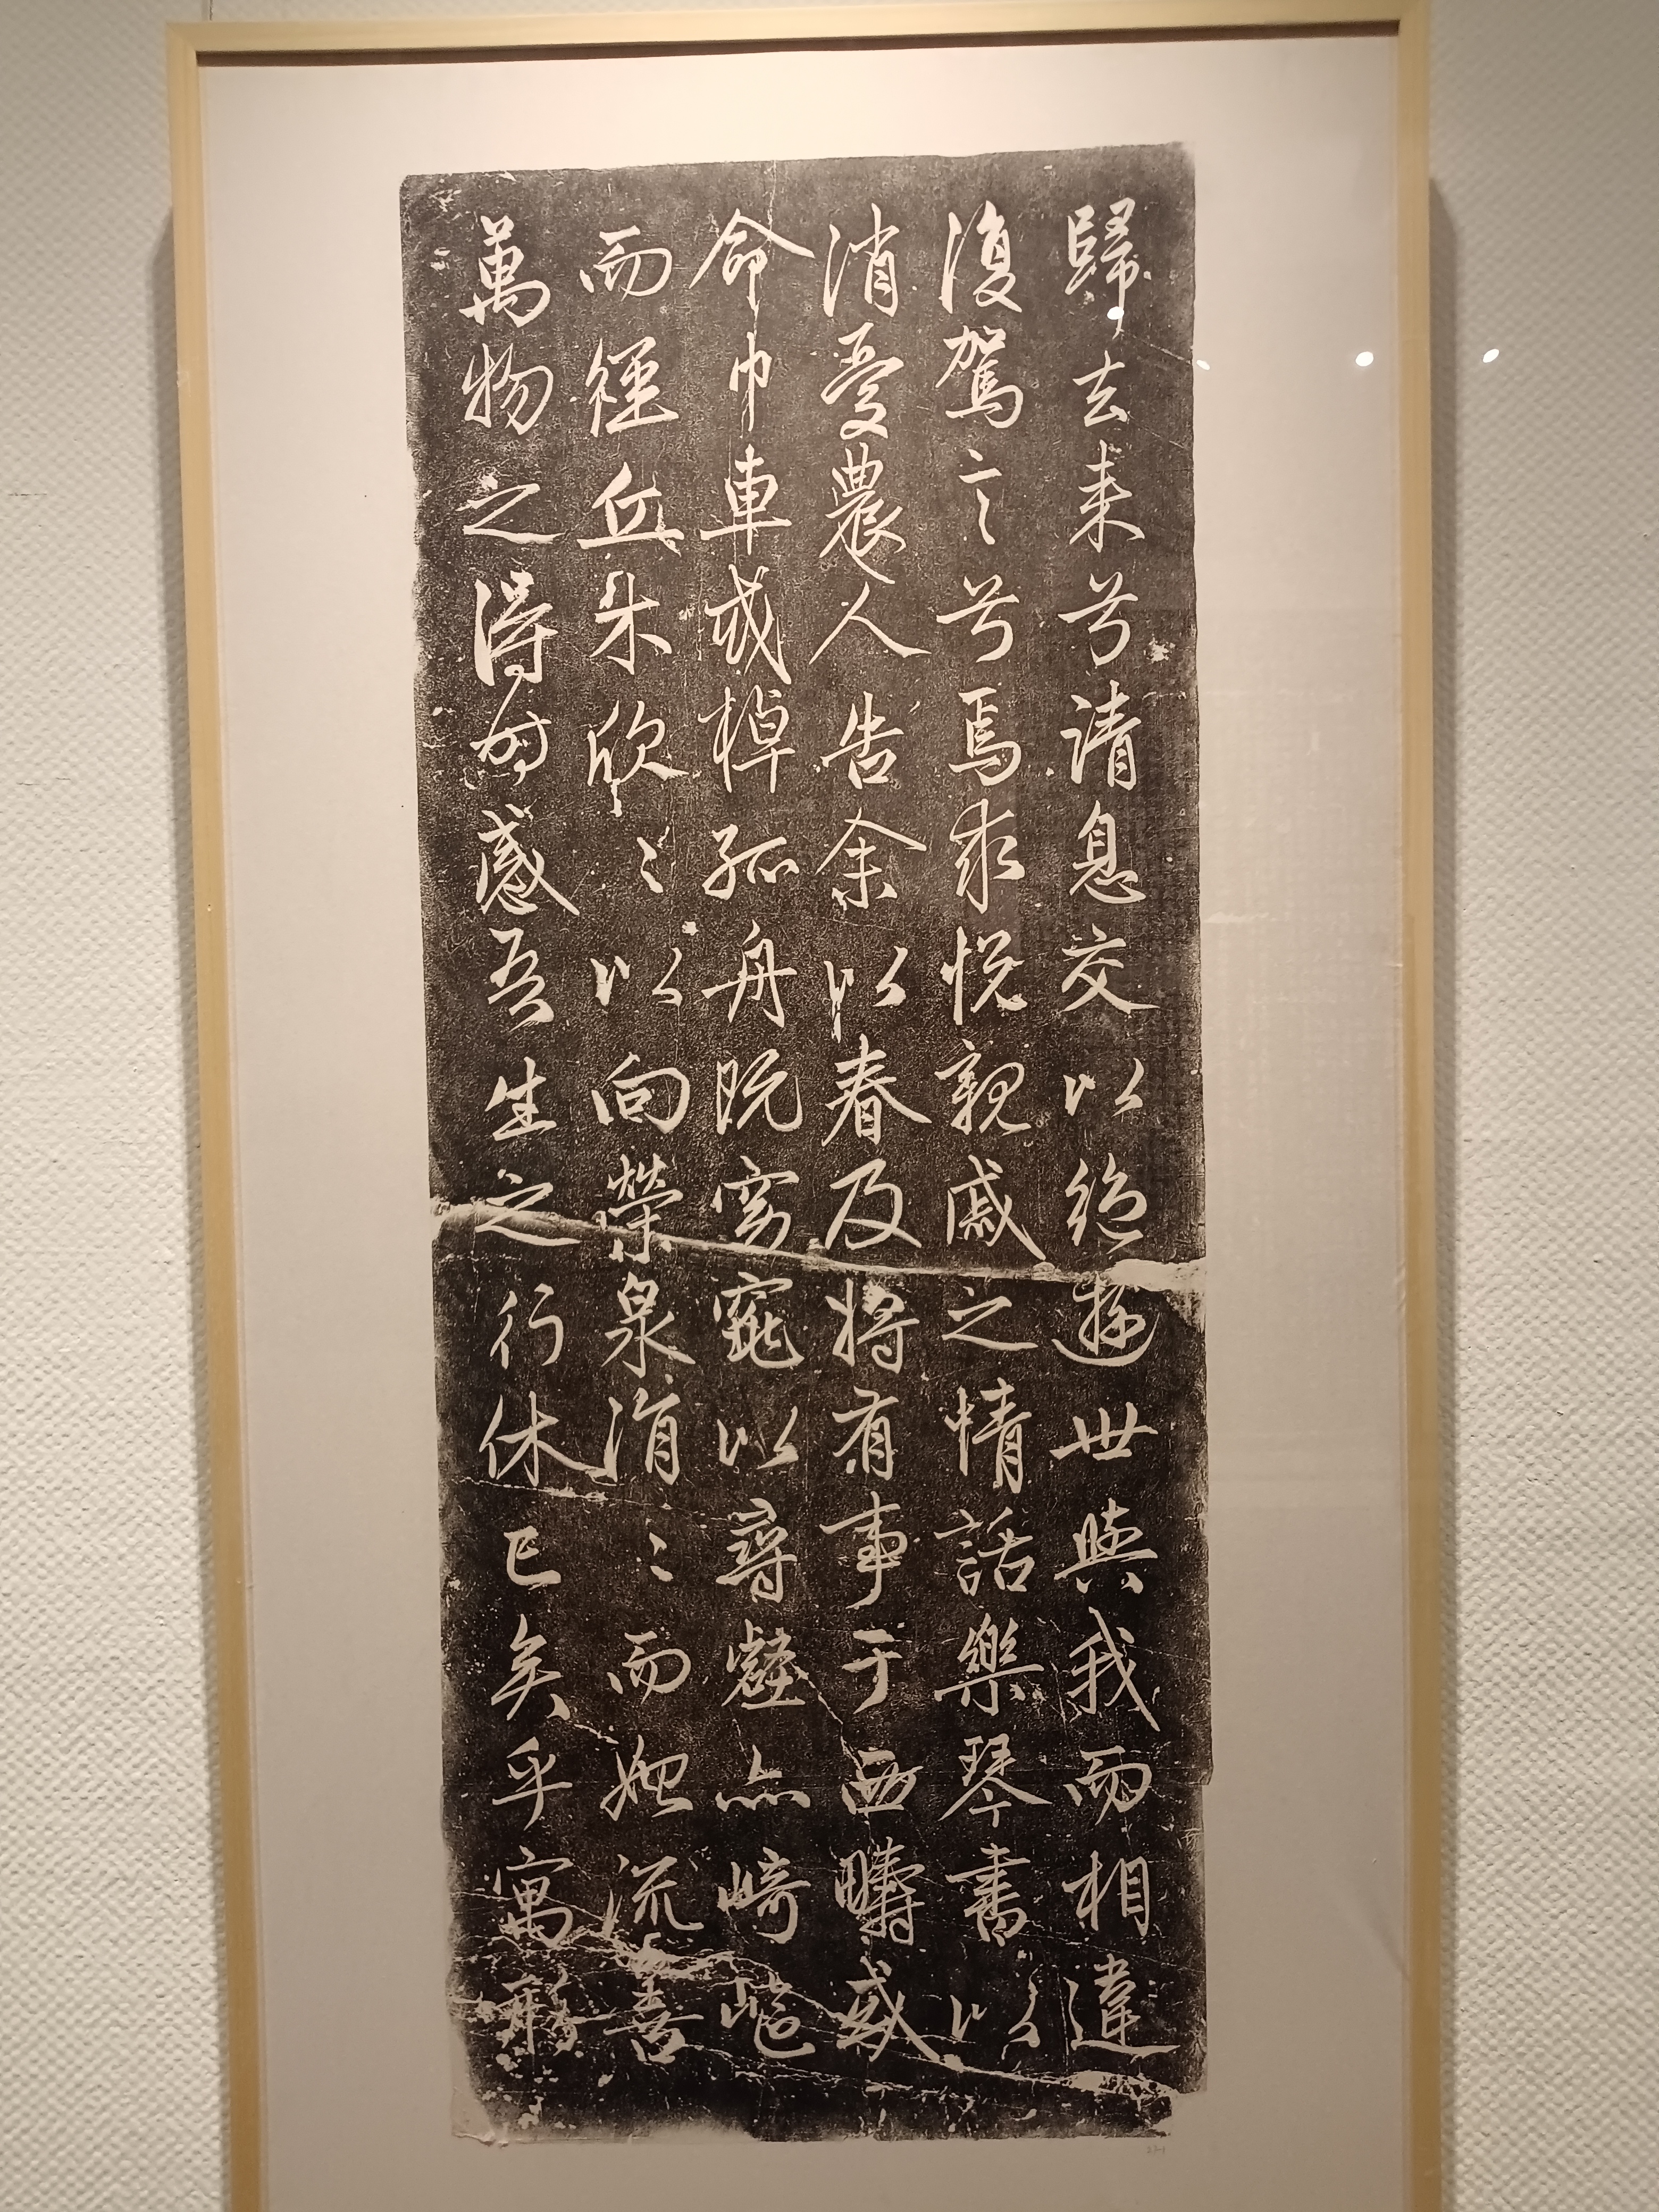 歸去来兮請息交以絶遊世與我而相違
復駕言兮焉求悦親戚之情話樂琴書以
消憂農人告余以春及将有事于西疇或
命巾車或棹孤舟既窈窕以尋壑亦崎嶇
而經丘木欣〻以向榮泉涓〻而始流善
萬物之得時感吾生之行休已矣乎寓形